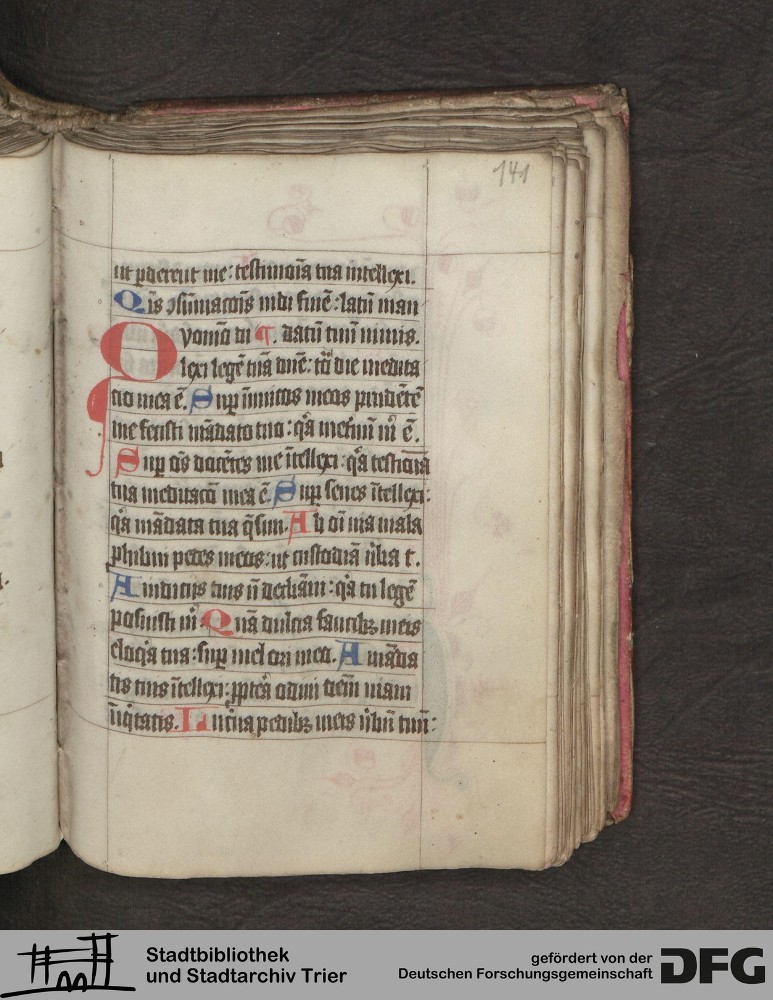 141
ut ꝑderent me: testimoīa tua intellexi.
Qīs ↄsūmacōis uidi finē: latū man
Quomō di ¶. datū tuū nimis.
lexi legē tuā dnē: tō die medita
tio mea ē. Suꝑ inimicos meos prudētē
me fecisti mādato tuo: qͣ ineternū mͥ ē.
Suꝑ oēs docētes me ītellexi: qͣ testioīa
tua meditacō mea ē. Suꝑ senes ītellexi:
qͣ mādata tua q̄siui. Ab oī uia mala
ꝓhibui pedes meos: ut custodiā ũba t.
A iudicijs tuis nō declīaui: qͣ tu legē
posuisti mͥ. Quā dulcia faucibꝫ meis
eloqͥa tua: suꝑ mel ori meo. A māda
tis tuis ītellexi: ꝓpteͣ odiui oēm uiam
iniqͥtatis. Lucͤna pedibꝫ meis ũbū tuū:
Stadtbibliothek
und Stadtarchiv Trier
gefördert von der
Deutschen Forschungsgemeinschaft
DFG